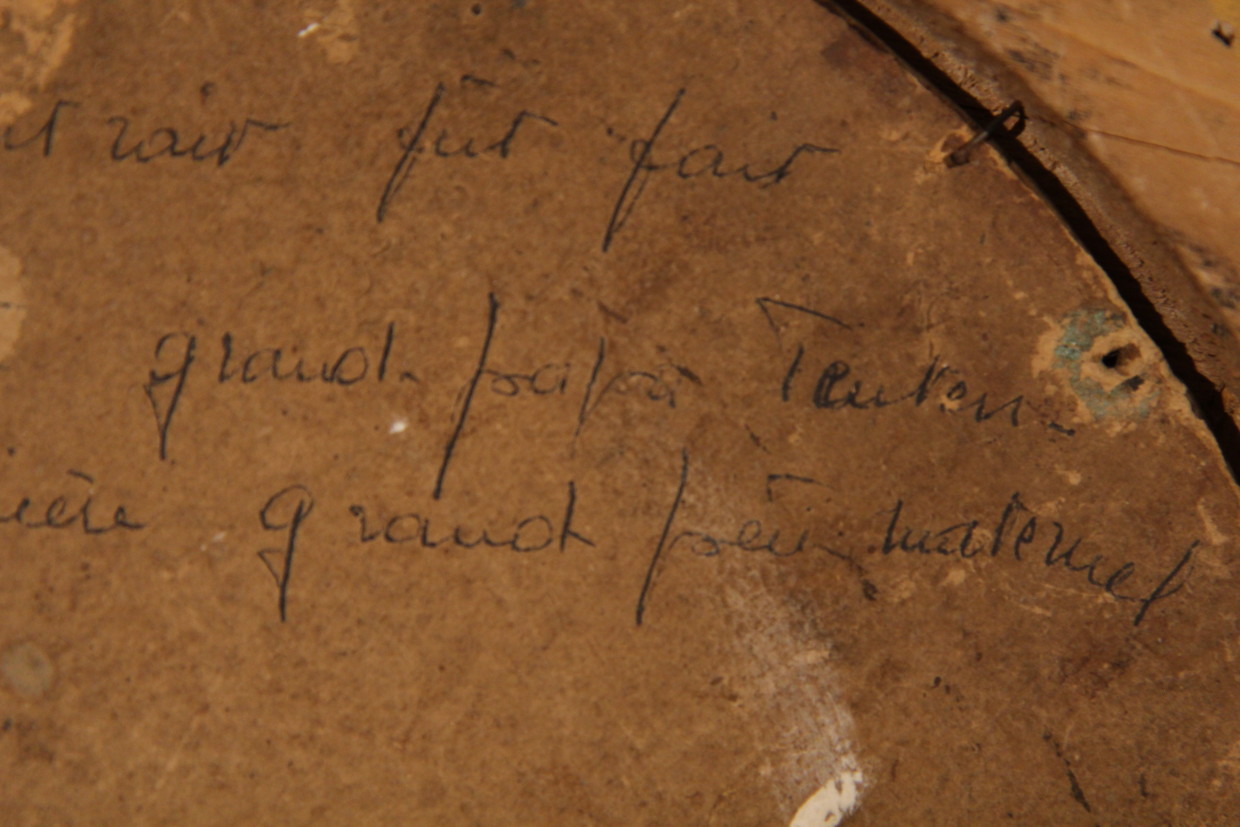 trait fut fait
grand papa Tenten
ière grand père maternel